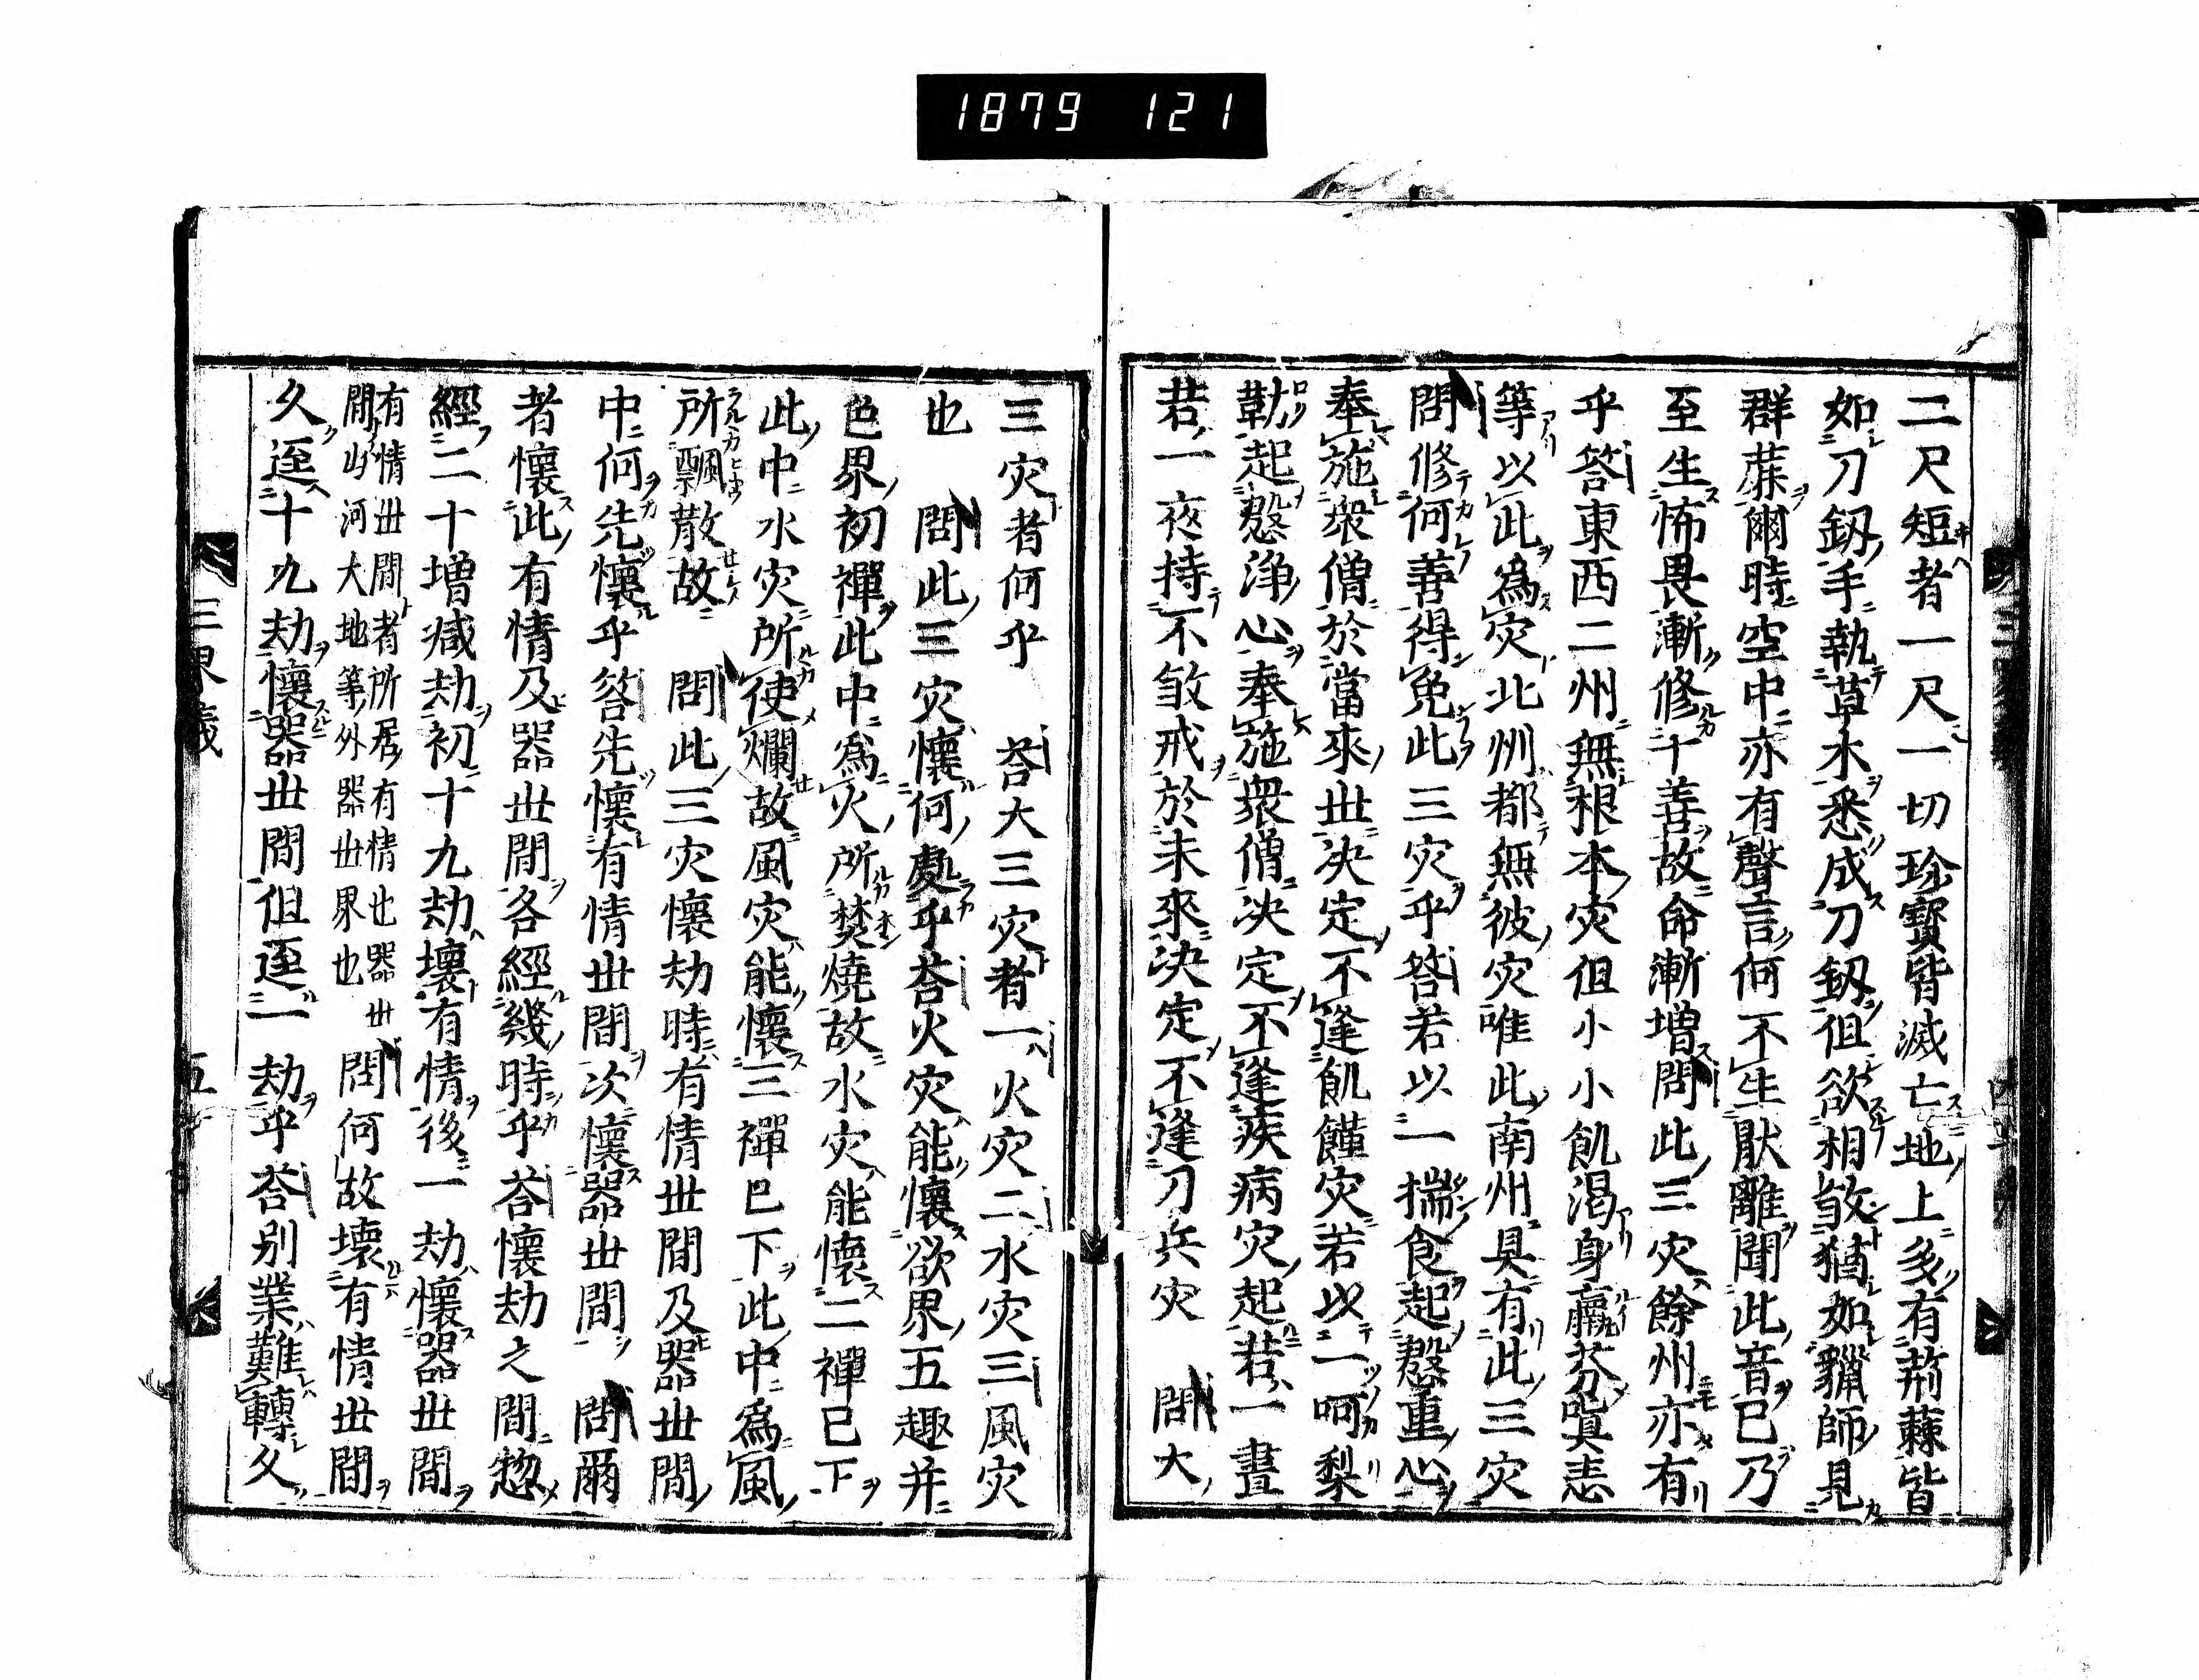 1879 121
二尺短者一尺一切珍寶皆滅亡地上多有荊蕀皆
如刀釼手執草木悉成刀釼但欲相敓猶如獵師見
群蘪爾時空中亦有聲言何不生猒離聞此音已乃
至生怖畏漸修十善故命漸増問此三灾餘州亦有
乎答東西二州無根本灾但小小飢渇身羸芬嗔恚
等以此爲灾北州都無彼灾唯此南州具有此三灾
問修何善得免此三灾乎答若以一揣食起慇重心
奉施衆僧於當來丗决定不逢飢饉灾若以一呵梨
勒起慇浄心奉施衆僧决定不逢疾病灾起若一晝
若一夜持不敓戒於未來决定不逢刀兵灾 問大
三灾者何乎 荅大三灾者一火灾二水灾三風灾
也 問此三灾懷何處乎荅火灾能懷欲界五趣并
色界初禪此中爲火所焚燒故水灾能懷二禪已下
此中水灾所使爛故風灾能懷三禪已下此中爲風
所飄散故 問此三灾懷劫時有情丗間及器丗間
中何先懷乎答先懷有情丗間次懷器丗間 問爾
者懷此有情及器丗間各經幾時乎荅懷劫之間惣
經二十増减劫初十九劫壞有情後一劫懷器丗間
有情丗間者所居有情也器丗
間山河大地等外器丗界也 問何故壊有情丗間
久逕十九劫懷器丗間但逕一劫乎荅别業難轉久
三界義 五